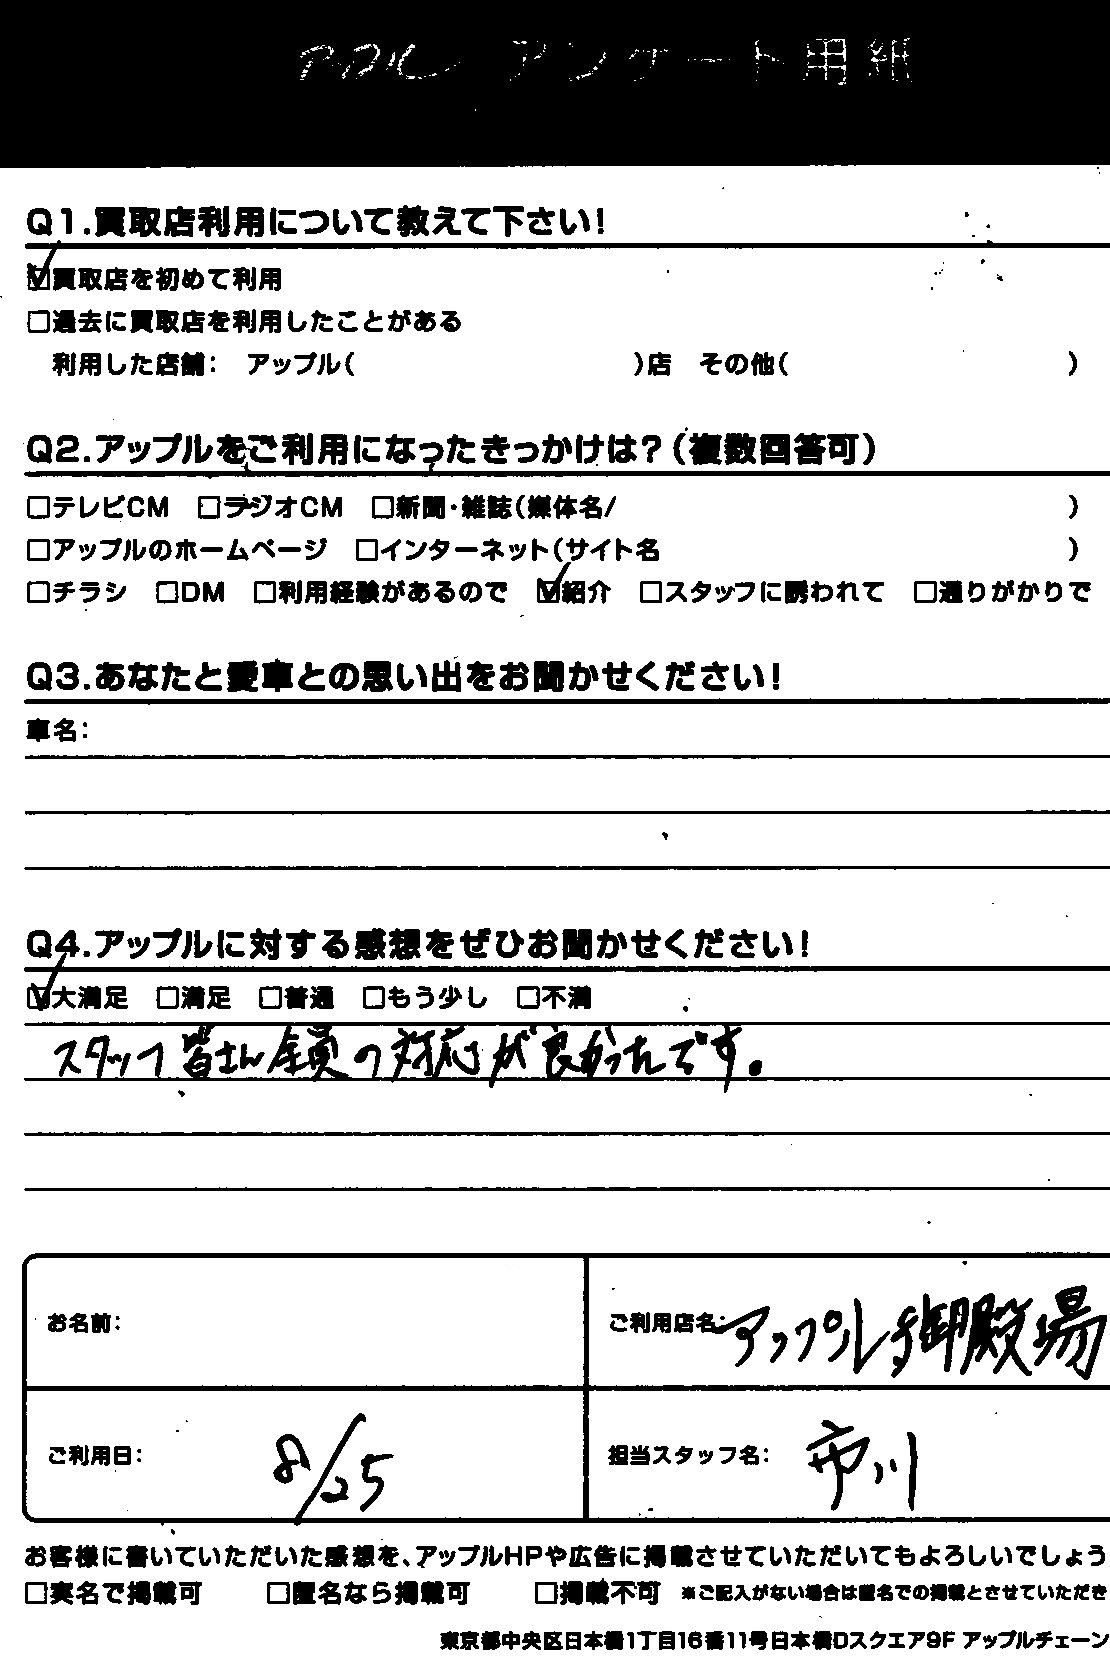 アップル アンケート用紙
Q1.買取店利用について教えて下さい!
☑買取店を初めて利用
□過去に買取店を利用したことがある
利用した店舗: アップル( )店 その他( )
Q2.アップルをご利用になったきっかけは?(複数回答可)
□テレビCM □ラジオCM □新聞・雑誌(媒体名/ )
□アップルのホームページ □インターネット(サイト名 )
□チラシ □DM □利用経験があるので ☑紹介 □スタッフに誘われて □通りがかりで
Q3.あなたと愛車との思い出をお聞かせください!
車名:
Q4.アップルに対する感想をぜひお聞かせください!
☑大満足 □満足 □普通 □もう少し □不満
スタッフ皆さん全員の対応が良かったです。
お名前:
ご利用店名: アップル御殿場
ご利用日: 8/25
担当スタッフ名: 市川
お客様に書いていただいた感想を、アップルHPや広告に掲載させていただいてもよろしいでしょう
□実名で掲載可 □匿名なら掲載可 □掲載不可 ※ご記入がない場合は匿名での掲載とさせていただき
東京都中央区日本橋1丁目16番11号日本橋Dスクエア9F アップルチェーン